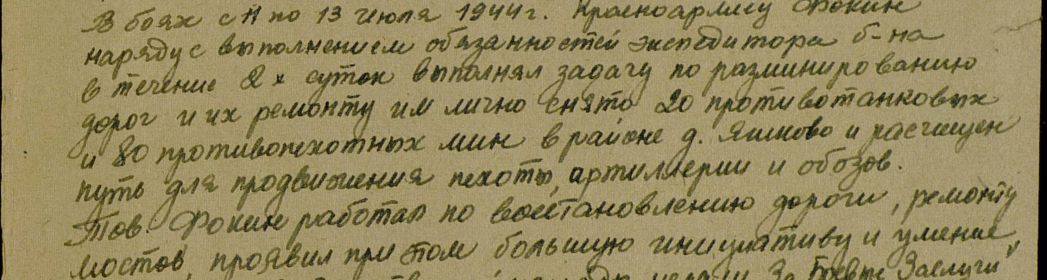 В боях с 11 по 13 июля 1944 г. Красноармеец Фокин
наряду с выполнением обязанностей экспедитора б-на
в течение 2х суток выполнял задачу по разминированию
дорог и их ремонту им лично снято 20 противотанковых
и 80 противопехотных мин в районе д. Яшково и расчищен
путь для продвижения пехоты, артиллерии и обозов.
Тов. Фокин работал по восстановлению дороги, ремонту
мостов, проявил при том большую инициативу и умение
За Боевые Заслуги"